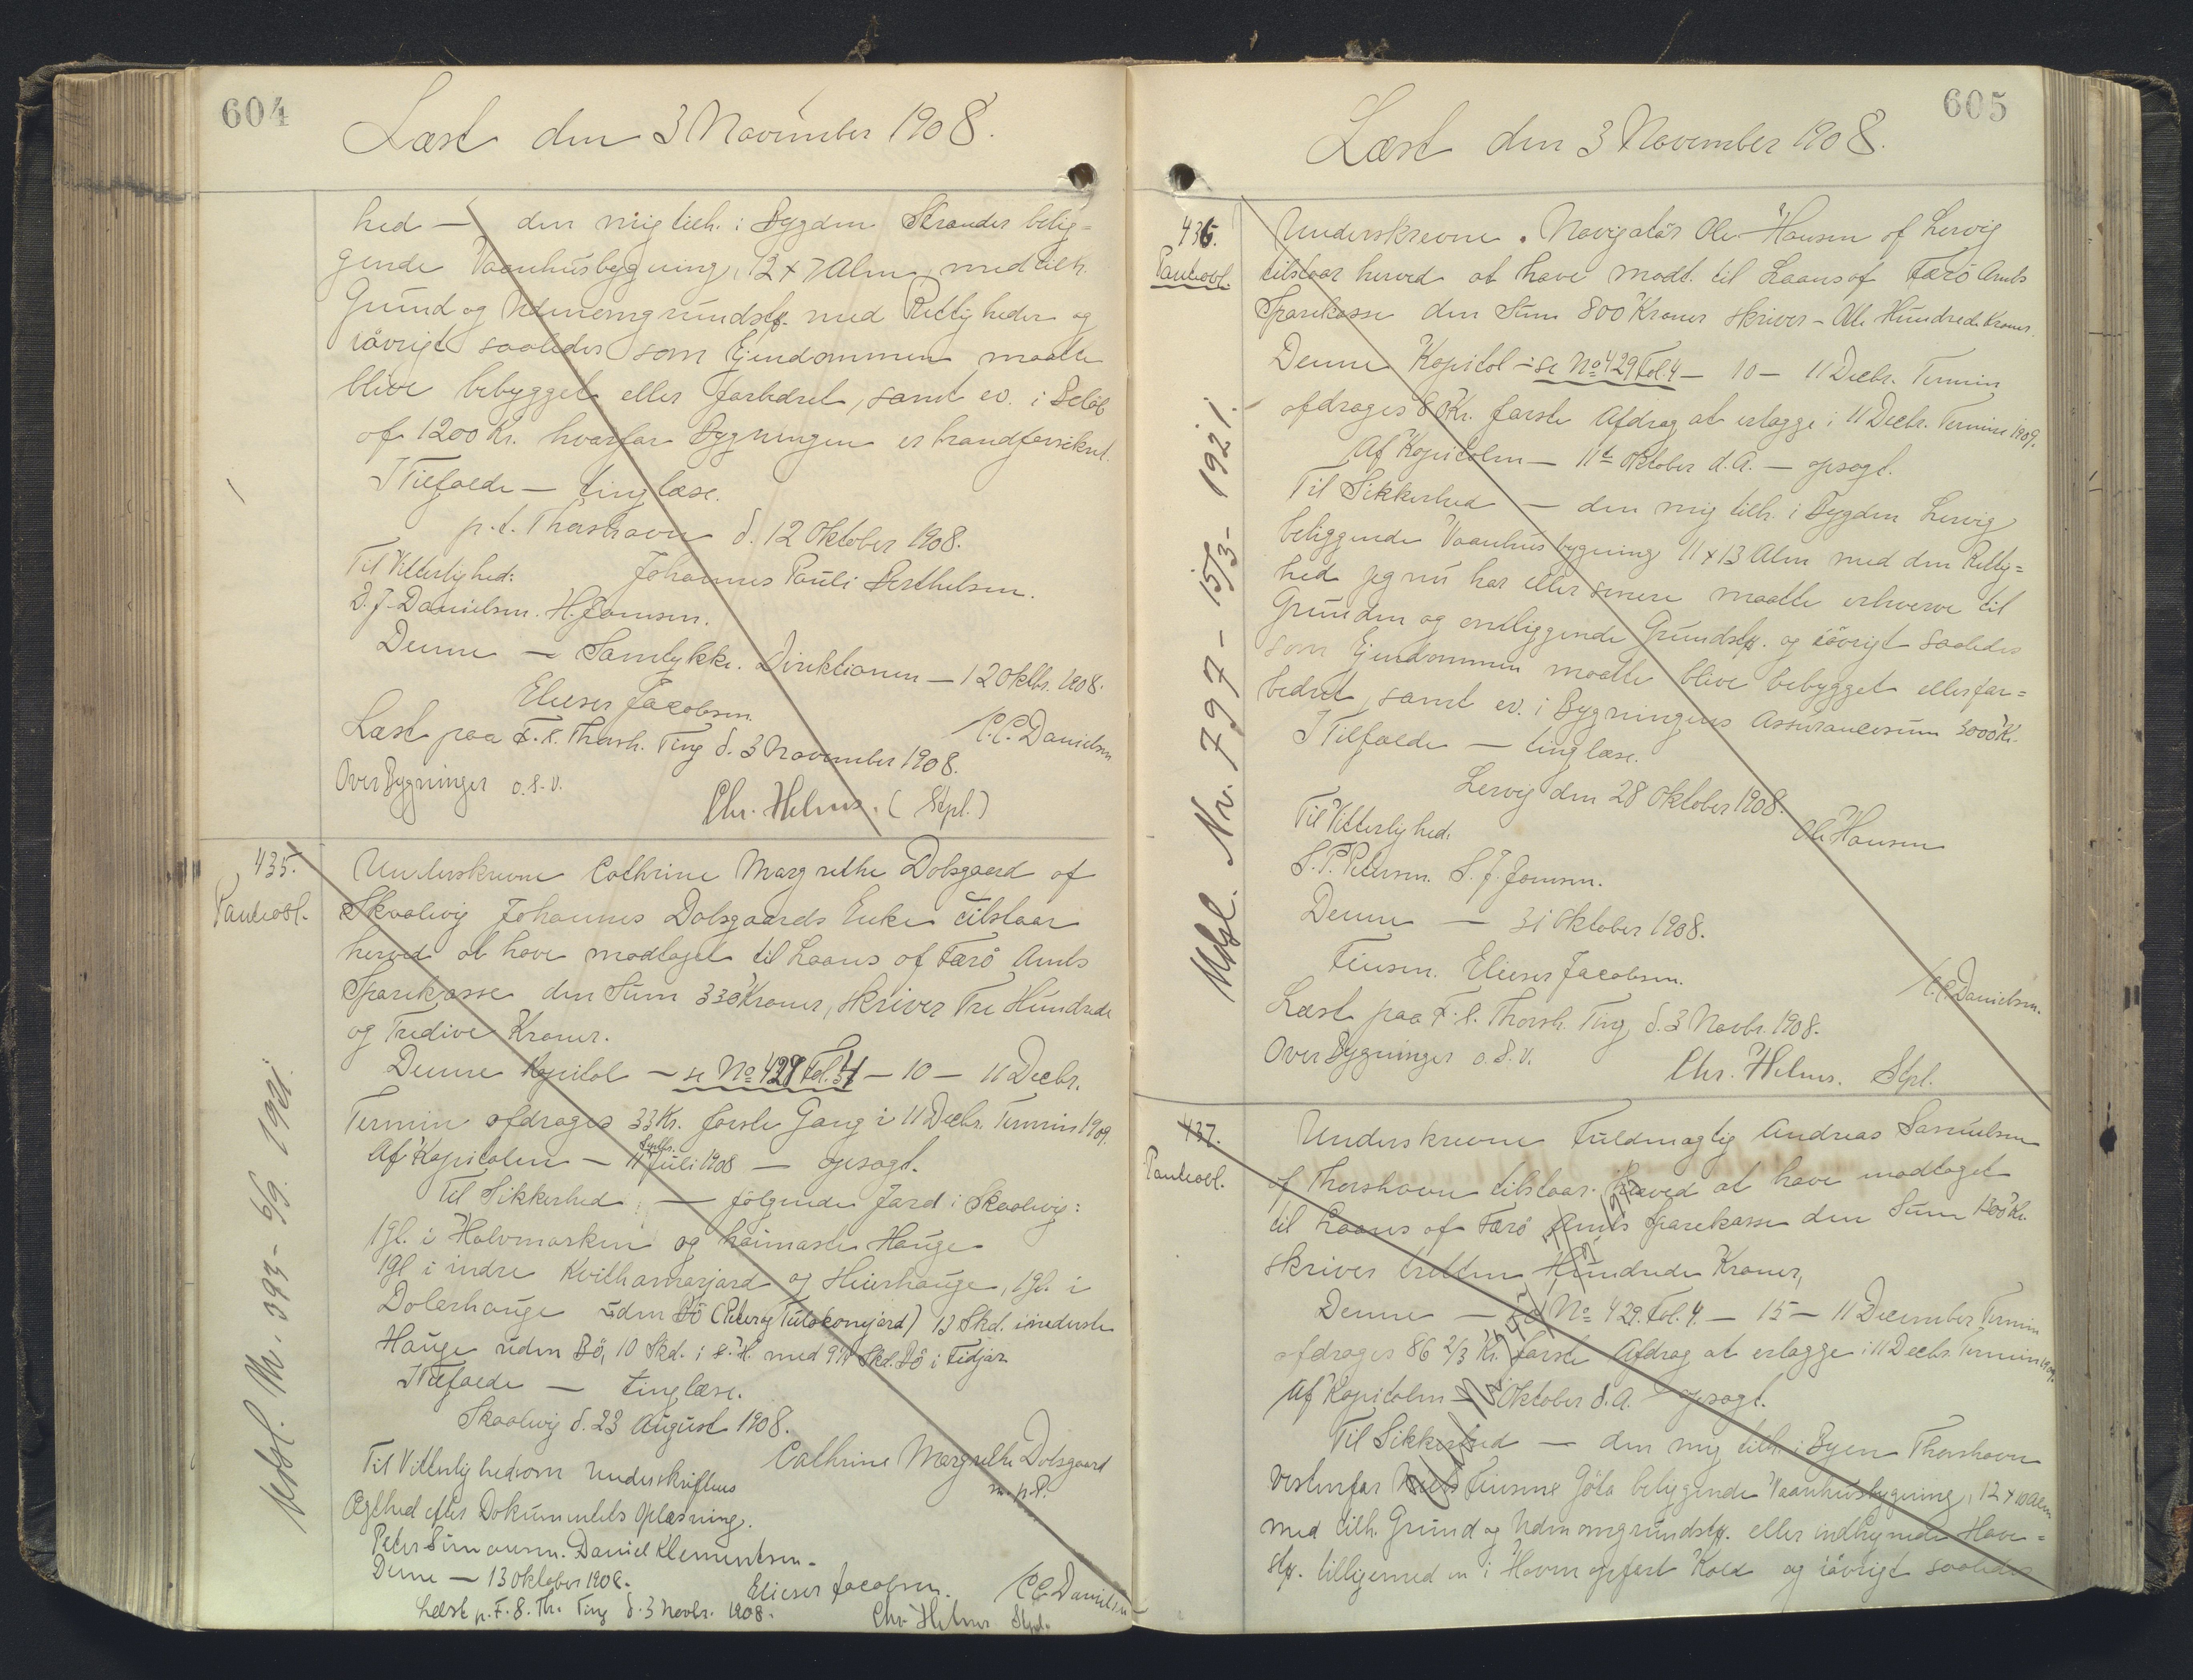 604
Læst den 3 November 1908.
hed — den mig tilh. i Bygden Strænder belig=
gende Vaanhusbygning, 12 x 7 Alen, med tilh.
Grund og Udenomsgrundstk. med Rettigheder og
iøvrigt saaledes som Ejendommen maatte
blive bebygget eller forbedret, samt ev. i Beløb
af 1200 Kr. hvorfor Bygningen er brandforsikret.
I Tilfælde — tinglæse.
p.t. Thorshavn d. 12 Oktober 1908.
Til Vitterlighed: Johannes Pauli Berthelsen.
D. J. Danielsen. H. Joensen.
Denne — Samtykke. Direktionen — 12 Oktbr. 1908.
Elieser Jacobsen. C. C. Danielsen
Læst paa F. S. Thorsh. Ting d. 3 November 1908.
Over Bygninger o.s.v. Chr. Helms. (Stpl.)
435.
Panteobl.
Underskrevne Cathrine Margrethe Dalsgaard af
Skaalevig Johannes Dalsgaards Enke tilstaar
herved at have modtaget til Laans af Færø Amts
Sparekasse den Sum 330 Kroner, skriver Tre Hundrede
og Tredive Kroner.
Denne Kapital — se No 429 Fol. 4 — 10 — 11 Decbr.
Termin afdrages 33 Kr. første Gang i 11 Decbr. Termin 1909.
Af Kapitalen — 11 Juli 1908 — opsagt.
Til Sikkerhed — følgende Jord i Skaalevig:
1 gl. i Halvmarken og haimaste Hauge
1 gl i indre Kvithamarjard og Heierhauge, 1 gl. i
Dalerhauge uden Bø 13 Skd. i inderste
Hauge uden Bø, 10 Skd. i s. H. med 9 1/4 Skd. Bø i Fidjar
I Tilfælde — tinglæse.
Skaalevig d. 23 August 1908.
Cathrine Margrethe Dalsgaard
m. p. P.
Til Vitterlighed om Underskriftens
Ægthed efter Dokumentets Oplæsning.
Peter Simonsen. Daniel Klementsen.
Denne — 13 Oktober 1908.
Elieser Jacobsen. C C Danielsen
Læst p. F. S. Th. Ting d. 3 Novbr. 1908. Chr. Helms. Stpl.
605
Læst den 3 November 1908.
436.
Panteobl.
Underskrevne. Navigatør Ole Hansen af Lervig
tilstaar herved at have modt. til Laans af Færø Amts
Sparekasse den Sum 800 Kroner skriver — Otte Hundrede Kroner.
Denne Kapital — se No 429 Fol. 4 — 10 — 11 Decbr. Termin
afdrages 80 Kr. første Afdrag at erlægge i 11 Decbr. Termin 1909.
Af Kapitalen — 11te Oktober d. A. — opsagt.
Til Sikkerhed — den mig tilh. i Bygden Lervig
beliggende Vaanhusbygning 11 x 13 Alen med den Rettig=
hed jeg nu har eller senere maatte erhverve til
Grunden og omliggende Grundstk. og iøvrigt saaledes
som Ejendommen maatte blive bebygget eller for=
bedret, samt ev. i Bygningens Assurancesum 3000 Kr.
I Tilfælde — tinglæse.
Lervig den 28 Oktober 1908.
Til Vitterlighed. Ole Hansen
S. P. Petersen. S. J. Joensen.
Denne — 31 Oktober 1908.
Feuson. Elieser Jacobsen. C. C. Danielsen.
Læst paa F. S. Thorsh. Ting, d. 3 Novbr. 1908.
Over Bygninger o.s.v. Chr. Helms. Stpl.
Udsl. Nr. 797 - 15/3 - 1921.
437.
Panteobl.
Underskrevne Fuldmægtig Andreas Samuelsen
af Thorshavn tilstaar herved at have modtaget
til Laans af Færø Amts Sparekasse den Sum 1300 Kr.
skriver tretten Hundrede Kroner,
Denne — se No 429. Fol. 4. — 15 — 11 December Termin
afdrages 86 2/3 Kr. første Afdrag at erlægge i 11 Decbr. Termin 1909.
Af Kapitalen — Oktober d. A. — opsagt.
Til Sikkerhed — den mig tilh. i Byen Thorshavn
vestenfor Niels Finsens Gøta beliggende Vaanhusbygning, 12 x 10 Alen
med tilh. Grund og Udenomsgrundstk. eller indhegnede Have=
stk. tilligemed en i Haven opført Kold og iøvrigt saaledes